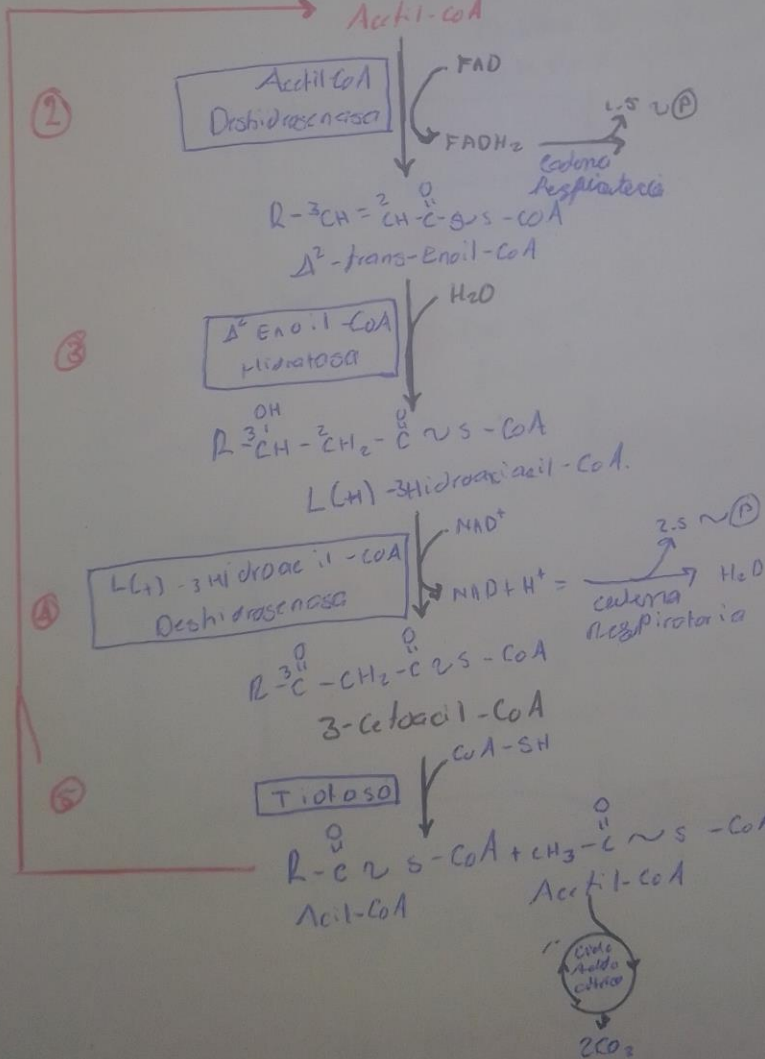 Acetil-CoA
②
Acetil CoA
Deshidrogenasa
FAD
FADH₂
1.5 ~ Ⓟ
Cadena
Respiratoria
O
R - ³CH = ²CH - C ~ S - CoA
Δ² - trans - Enoil - CoA
H₂O
③
Δ² Enoil - CoA
Hidratasa
OH O
R - ³CH - ²CH₂ - C ~ S - CoA
L(+) - 3Hidroxiacil - CoA.
NAD⁺
④
L(+) - 3 Hidroacil - CoA
Deshidrogenasa
NAD + H⁺ =
2.5 ~ Ⓟ
H₂O
cadena
Respiratoria
O O
R - ³C - CH₂ - C ~ S - CoA
3-Cetoacil-CoA
CoA-SH
⑤
Tiolasa
O O
R - C ~ S - CoA + CH₃ - C ~ S - CoA
Acil-CoA
Acetil-CoA
Ciclo
Acido
citrico
2CO₂